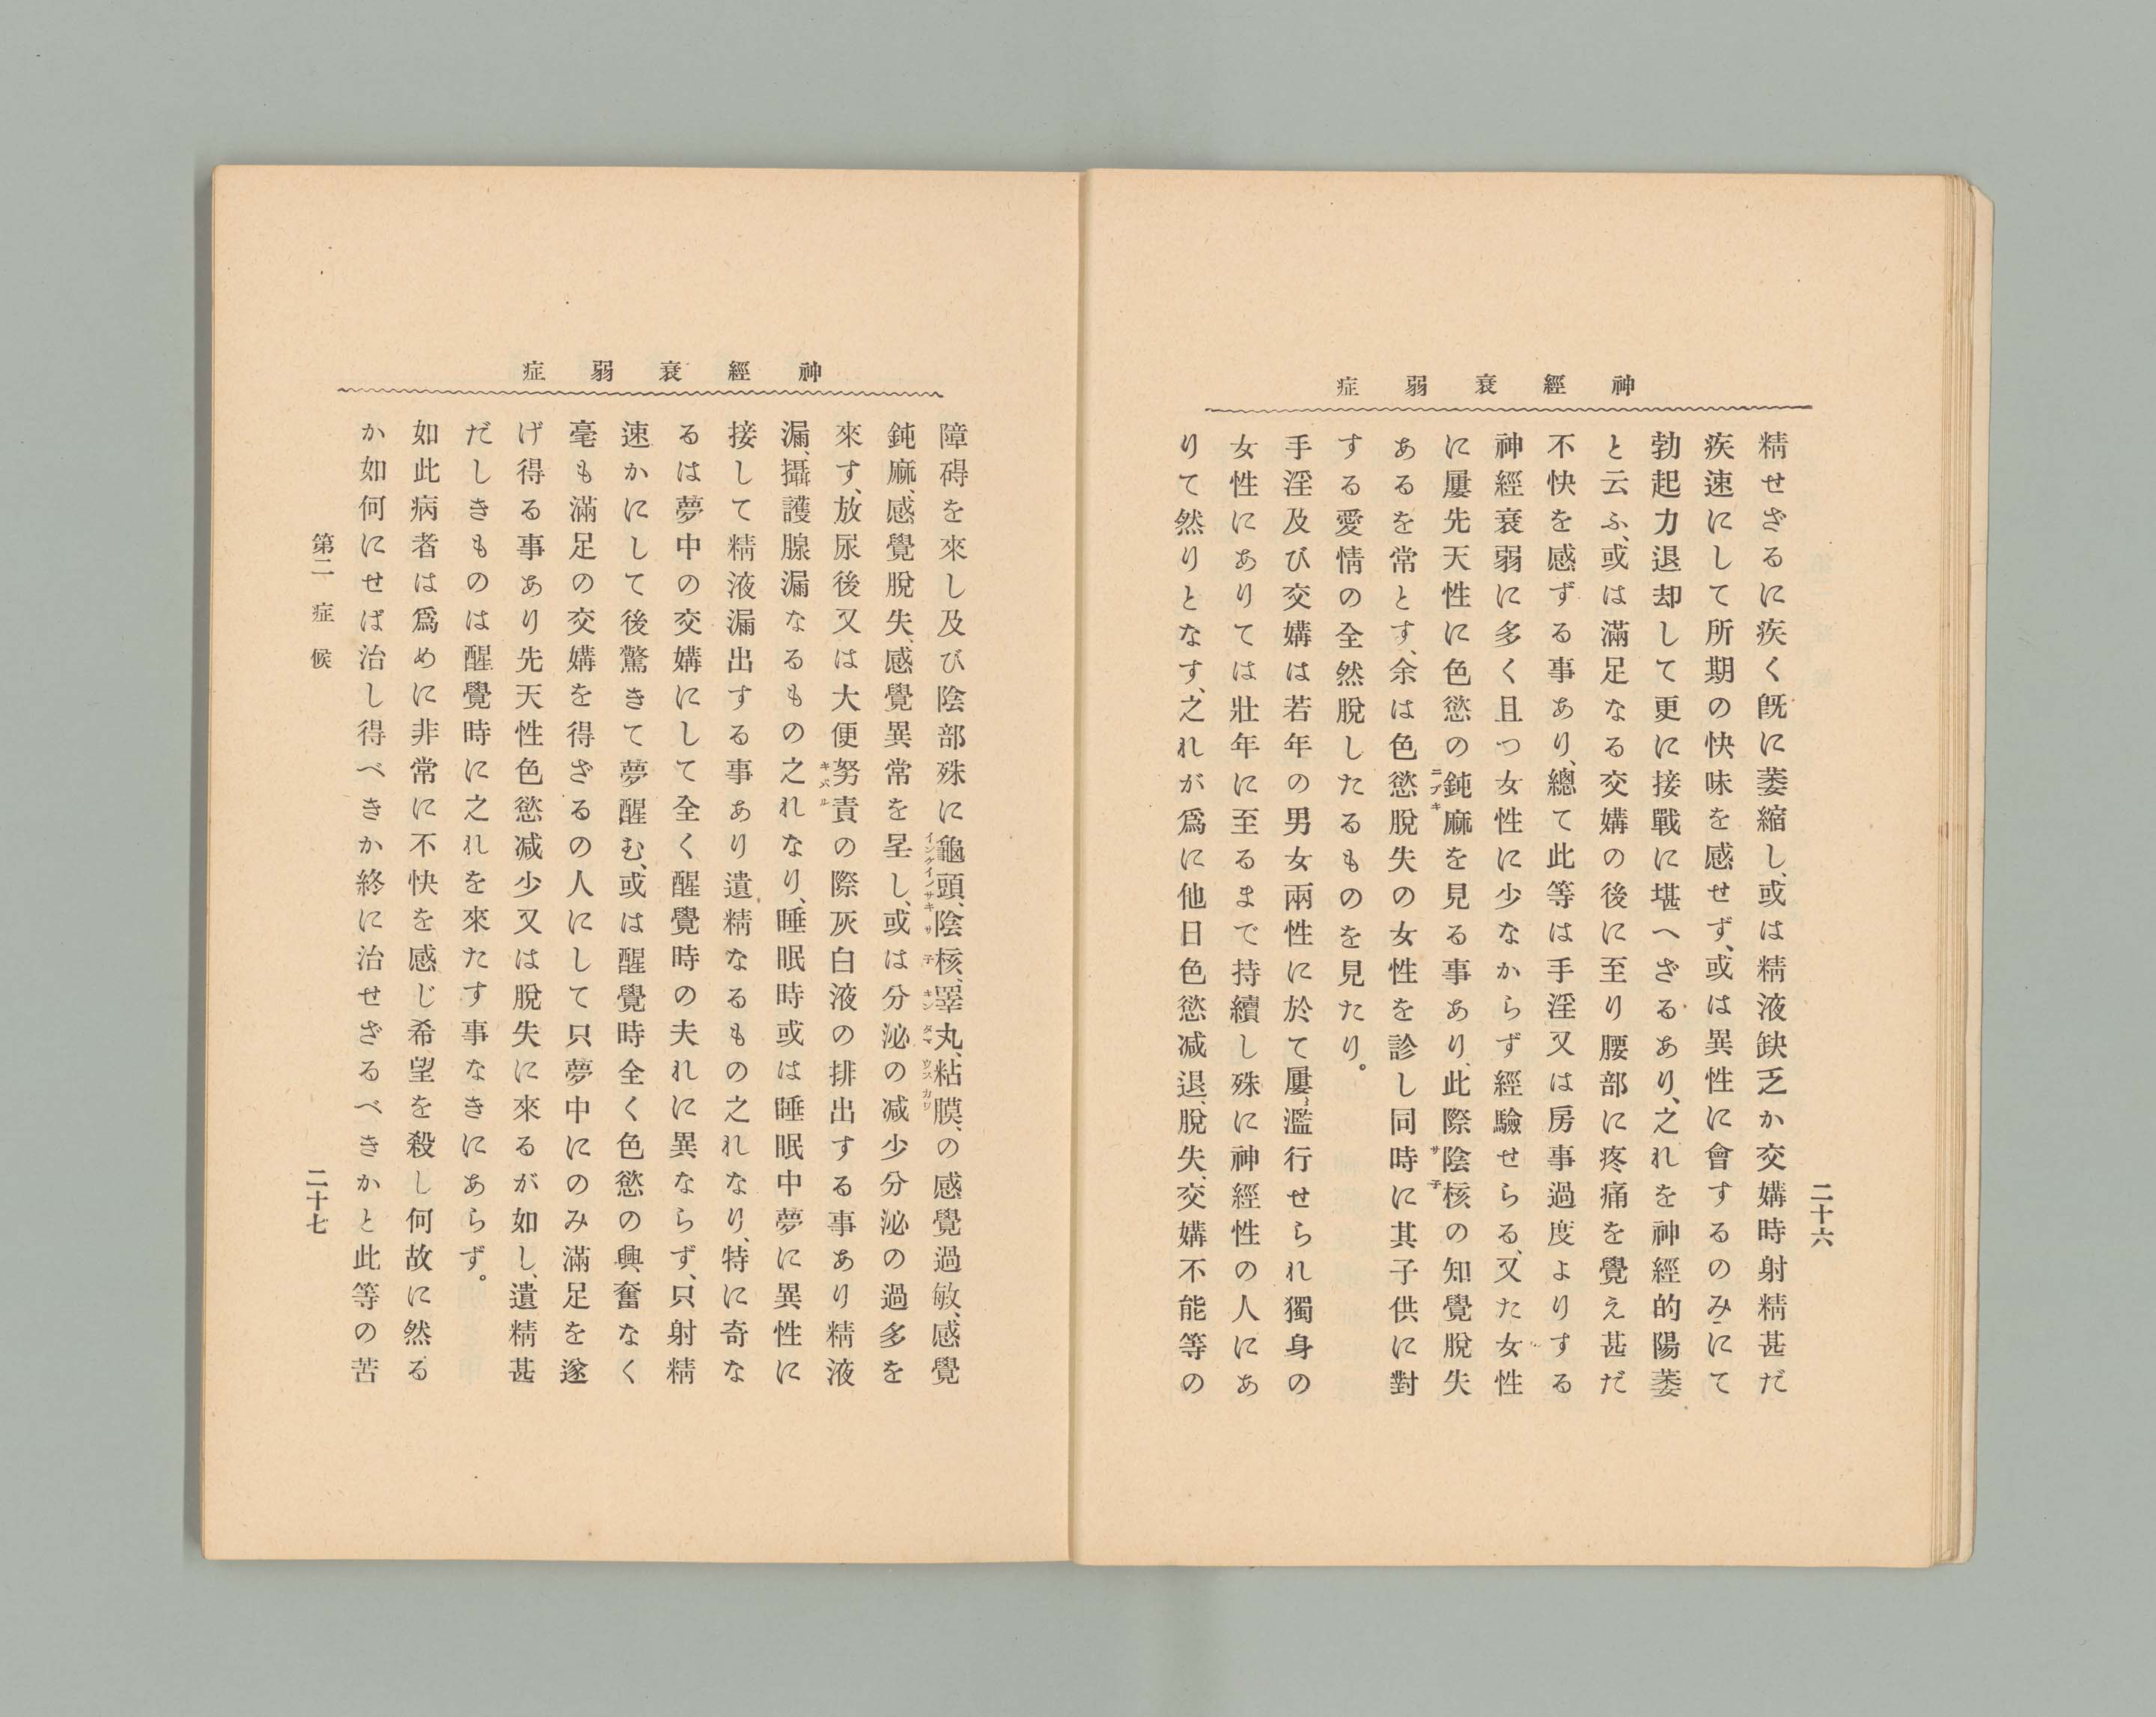 神經衰弱症
二十六
精せざるに疾く旣に萎縮し、或は精液缺乏か交媾時射精甚だ
疾速にして所期の快味を感せず、或は異性に會するのみにて
勃起力退却して更に接戰に堪へざるあり、之れを神經的陽萎
と云ふ、或は滿足なる交媾の後に至り腰部に疼痛を覺え甚だ
不快を感ずる事あり、總て此等は手淫又は房事過度よりする
神經衰弱に多く且つ女性に少なからず經驗せらる、又た女性
に屢先天性に色慾の鈍麻を見る事あり、此際陰核の知覺脫失
あるを常とす、余は色慾脫失の女性を診し同時に其子供に對
する愛情の全然脫したるものを見たり。
手淫及び交媾は若年の男女兩性に於て屢〻濫行せられ獨身の
女性にありては壯年に至るまで持續し殊に神經性の人にあ
りて然りとなす、之れが爲に他日色慾减退、脫失、交媾不能等の
神經衰弱症
障碍を來し及び陰部殊に龜頭、陰核、睪丸、粘膜、の感覺過敏、感覺
鈍麻、感覺脫失、感覺異常を呈し、或は分泌の减少分泌の過多を
來す、放尿後又は大便努責の際灰白液の排出する事あり精液
漏、攝護腺漏なるもの之れなり、睡眠時或は睡眠中夢に異性に
接して精液漏出する事あり遺精なるもの之れなり、特に奇な
るは夢中の交媾にして全く醒覺時の夫れに異ならず、只射精
速かにして後驚きて夢醒む、或は醒覺時全く色慾の興奮なく
毫も滿足の交媾を得ざるの人にして只夢中にのみ滿足を遂
げ得る事あり先天性色慾减少又は脫失に來るが如し、遺精甚
だしきものは醒覺時に之れを來たす事なきにあらず。
如此病者は爲めに非常に不快を感じ希望を殺し何故に然る
か如何にせば治し得べきか終に治せざるべきかと此等の苦
第二 症候
二十七